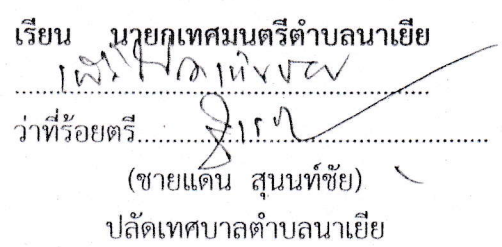 เรียน นายกเทศมนตรีตำบลนาเยีย
ว่าที่ร้อยตรี
(ชายแดน สุนนท์ชัย)
ปลัดเทศบาลตำบลนาเยีย